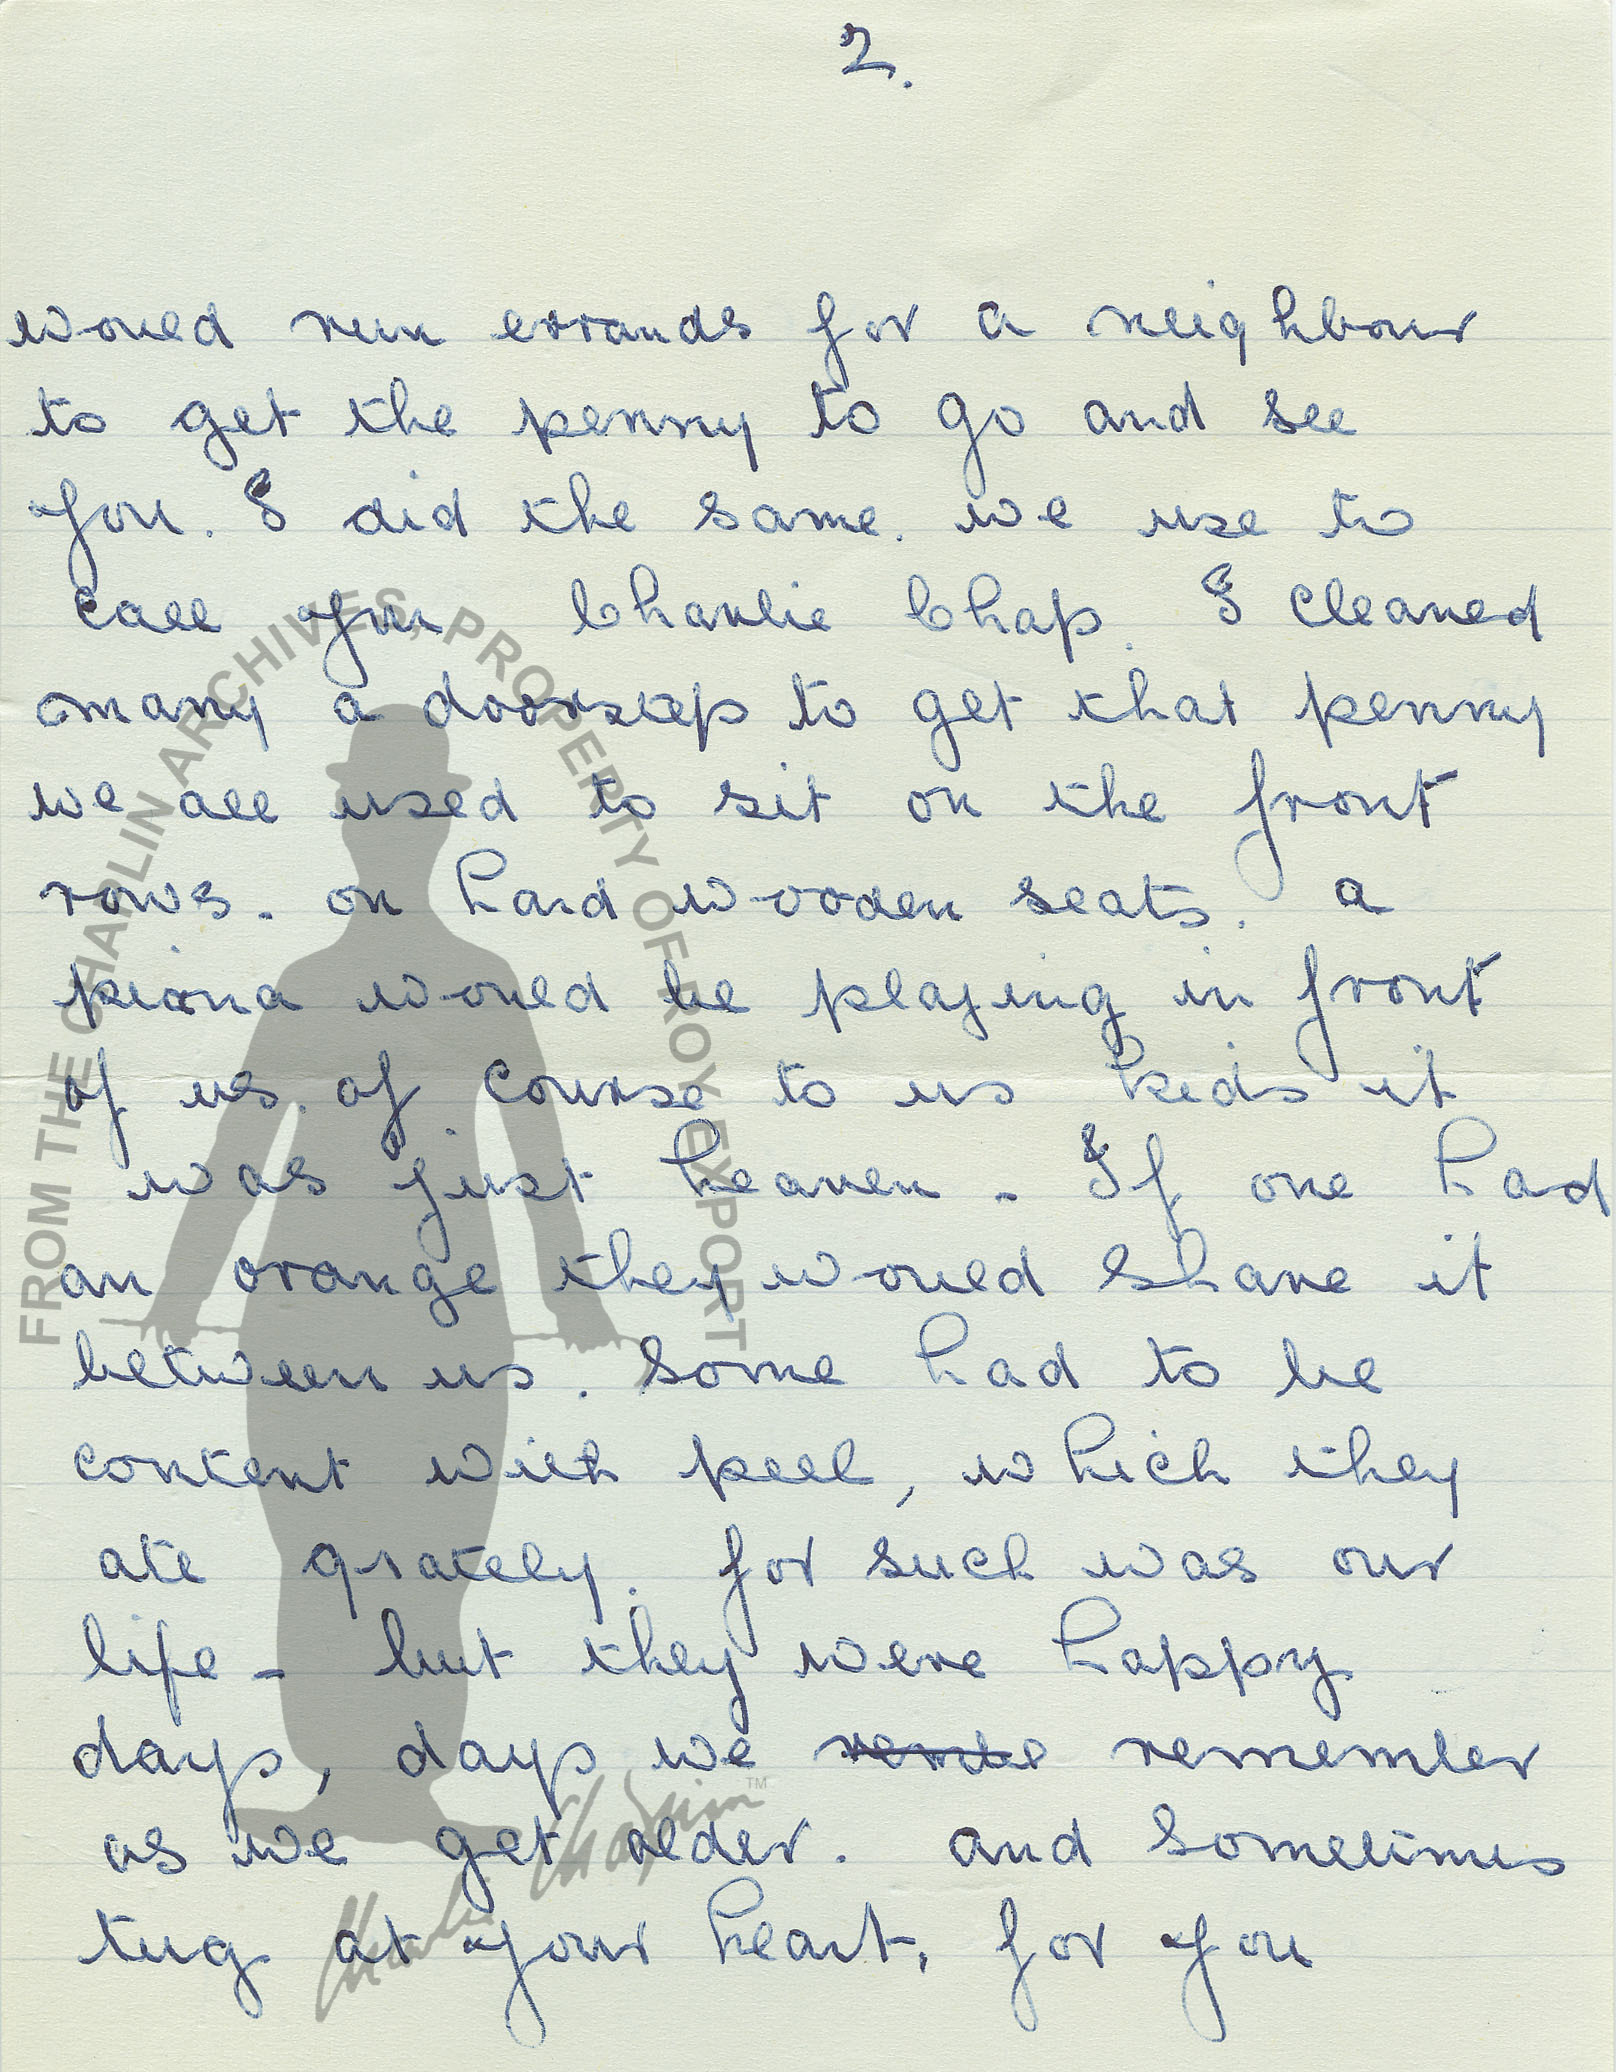 2.
would run errands for a neighbour
to get the penny to go and see
you. I did the same. we use to
call you Charlie Chap. I cleaned
many a doorstep to get that penny
we all used to sit on the front
rows. on hard wooden seats. a
piona would be playing in front
of us. of course to us kids it
was just heaven - If one had
an orange they would share it
between us. Some had to be
content with peel, which they
ate grately. for such was our
life - but they were happy
days, days we remember
as we get older. and sometimes
tug at your heart, for you
FROM THE CHAPLIN ARCHIVES, PROPERTY OF ROY EXPORT
Charlie Chaplin TM